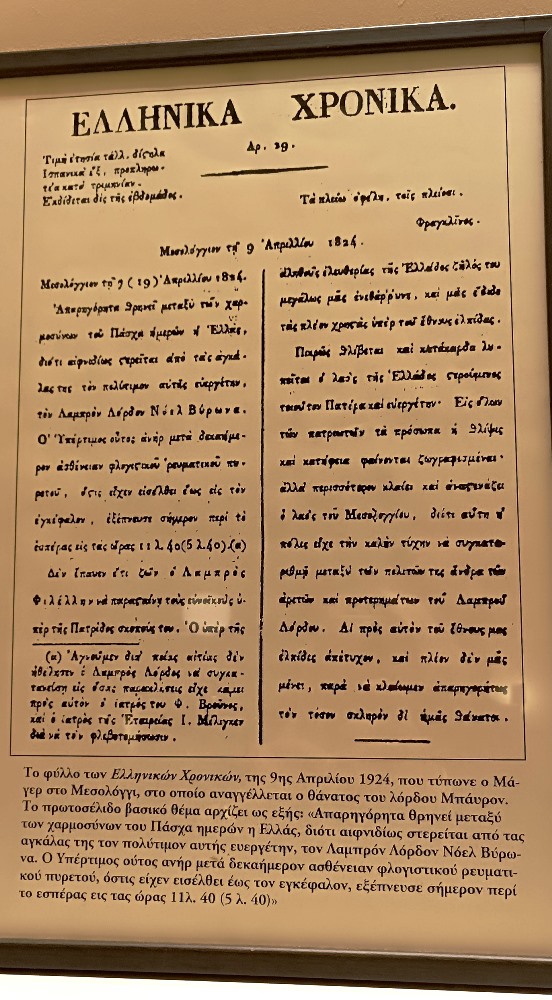 ΕΛΛΗΝΙΚΑ ΧΡΟΝΙΚΑ.
Αρ. 29.
Τιμὴ ἐτησία τάλλ. δίστηλα
Ισπανικὰ ἓξ, προπληρω-
τέα κατὰ τριμηνίαν.
Εκδίδεται δὶς τῆς ἑβδομάδος.
Τὰ πλείω ὀφέλη, τοῖς πλείοσι.
Φραγκλῖνος.
Μεσολόγγιον τῇ 9 Ἀπριλλίου 1824.
Μεσολόγγιον τῇ 9 (19) Ἀπριλλίου 1824.
Ἀπαρηγόρητα θρηνεῖ μεταξὺ τῶν χαρ-
μοσύνων τοῦ Πάσχα ἡμερῶν ἡ Ἑλλὰς,
διότι αἰφνιδίως στερεῖται ἀπὸ τὰς ἀγκά-
λας της τὸν πολύτιμον αὐτῆς εὐεργέτην,
τὸν Λαμπρὸν Λόρδον Νόελ Βύρωνα.
Ο' Ὑπέρτιμος οὗτος ἀνὴρ μετὰ δεκαήμε-
ρον ἀσθένειαν φλογιστικοῦ ῥευματικοῦ πυ-
ρετοῦ, ὅστις εἶχεν εἰσέλθει ἕως εἰς τὸν
ἐγκέφαλον, ἐξέπνευσε σήμερον περὶ τὸ
ἑσπέρας εἰς τὰς ὥρας 11 λ. 40 (5 λ. 40).(α)
Δὲν ἔπαυεν ἔτι ζῶν ὁ Λαμπρὸς
Φιλέλλην νὰ παρασταίνῃ τοὺς εὐνοϊκοὺς ὑ-
πὲρ τῆς Πατρίδος σκοπούς του. Ὁ ὑπὲρ τῆς
(α) Ἀγνοοῦμεν διὰ ποίας αἰτίας δὲν
ἠθέλησεν ὁ Λαμπρὸς Λόρδος νὰ συγκα-
τανεύσῃ εἰς ὅσας παρακλήσεις εἶχε κάμει
πρὸς αὐτὸν ὁ ἰατρός του Φ. Βροῦνος,
καὶ ὁ ἰατρὸς τῆς Ἑταιρείας Ι. Μίλιγκεν
διὰ νὰ τὸν φλεβοτομήσωσιν.
ἀληθοῦς ἐλευθερίας τῆς Ἑλλάδος ζῆλός του
μεγάλως μᾶς ἐνεθάρρυνε, καὶ μᾶς ἔδιδε
τὰς πλέον χρηστὰς ὑπὲρ τοῦ ἔθνους ἐλπίδας.
Πικρῶς θλίβεται καὶ κατάκαρδα λυ-
πεῖται ὁ λαὸς τῆς Ἑλλάδος στερούμενος
τοιοῦτον Πατέρα καὶ εὐεργέτην· Εἰς ὅλων
τῶν πατριωτῶν τὰ πρόσωπα ἡ θλίψις
καὶ κατήφεια φαίνονται ζωγραφισμέναι·
ἀλλὰ περισσότερον κλαίει καὶ ἀναστενάζει
ὁ λαὸς τοῦ Μεσολογγίου, διότι αὕτη ἡ
πόλις εἶχε τὴν καλὴν τύχην νὰ συγκατα-
ριθμῇ μεταξὺ τῶν πολιτῶν της ἄνδρα τῶν
ἀρετῶν καὶ προτερημάτων τοῦ Λαμπροῦ
Λόρδου. Αἱ πρὸς αὐτὸν τοῦ ἔθνους μας
ἐλπίδες ἀπέτυχον, καὶ πλέον δὲν μᾶς
μένει, παρὰ νὰ κλαίωμεν ἀπαρηγορήτως
τὸν τόσον σκληρὸν δι' ἡμᾶς θάνατον.
Το φύλλο των Ελληνικών Χρονικών, της 9ης Απριλίου 1924, που τύπωνε ο Μά-
γερ στο Μεσολόγγι, στο οποίο αναγγέλλεται ο θάνατος του λόρδου Μπάυρον.
Το πρωτοσέλιδο βασικό θέμα αρχίζει ως εξής: «Απαρηγόρητα θρηνεί μεταξύ
των χαρμοσύνων του Πάσχα ημερών η Ελλάς, διότι αιφνιδίως στερείται από τας
αγκάλας της τον πολύτιμον αυτής ευεργέτην, τον Λαμπρόν Λόρδον Νόελ Βύρω-
να. Ο Υπέρτιμος ούτος ανήρ μετά δεκαήμερον ασθένειαν φλογιστικού ρευματι-
κού πυρετού, όστις είχεν εισέλθει έως τον εγκέφαλον, εξέπνευσε σήμερον περί
το εσπέρας εις τας ώρας 11λ. 40 (5 λ. 40)»